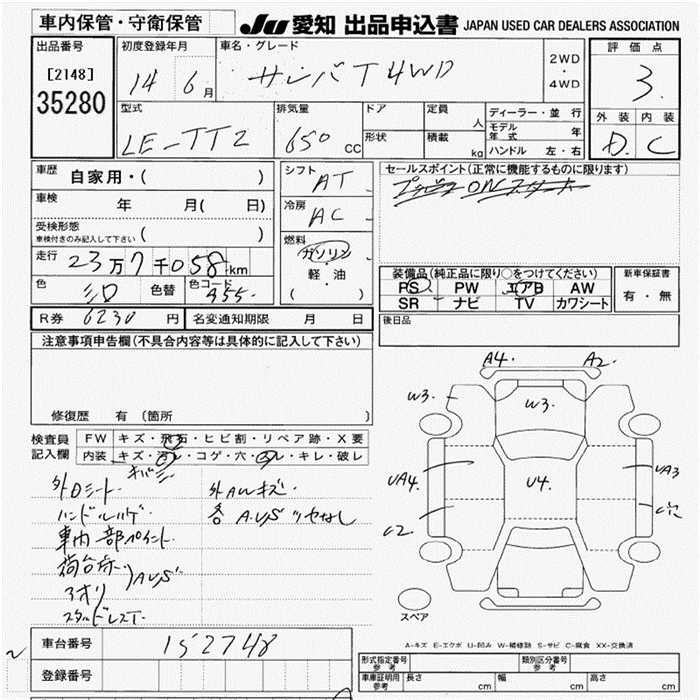 車内保管・守衛保管
JU 愛知 出品申込書 JAPAN USED CAR DEALERS ASSOCIATION
出品番号
[2148]
35280
初度登録年月
14 6月
車名・グレード
サンバT 4WD
2WD
・
4WD
評価点
3.
外装 内装
D. C
型式
LE-TT2
排気量
650 CC
ドア
形状
定員 人
積載 kg
ディーラー・並行
モデル年式 年
ハンドル 左・右
車歴
自家用・( )
車検
年 月( 日)
受検形態
車検付きのみ記入して下さい ( )
走行
23万7千058km
色
シロ
色替
色コード
955
シフト
AT
冷房
AC
燃料
ガソリン
・
軽・油
( )
セールスポイント(正常に機能するものに限ります)
装備品(純正品に限り○をつけてください)
PS PW エアB AW
SR ナビ TV カワシート
新車保証書
有・無
R券 6230 円
名変通知期限 月 日
後日品
注意事項申告欄(不具合内容等は具体的に記入して下さい)
修復歴 有 (箇所 )
検査員
記入欄
FW キズ・飛石・ヒビ割・リペア跡・X要
内装 キズ・汚レ・コゲ・穴・スレ・キレ・破レ
外Dミラー キズ
ハンドルハゲ
車内部ペイント
荷台赤
アオリ
A.U.S
スタッドレスT.
外AWキズ.
各 A.U.S ツヤなし
A4. A2.
W3. W3.
UA4. U4. UA3
C2.
スペア
A-キズ E-エクボ U-凹み W-補修跡 S-サビ C-腐食 XX-交換済
車台番号 152748
登録番号
形式指定番号 参考
類別区分番号 参考
車庫証明用 参考
長さ cm 幅 cm 高さ cm